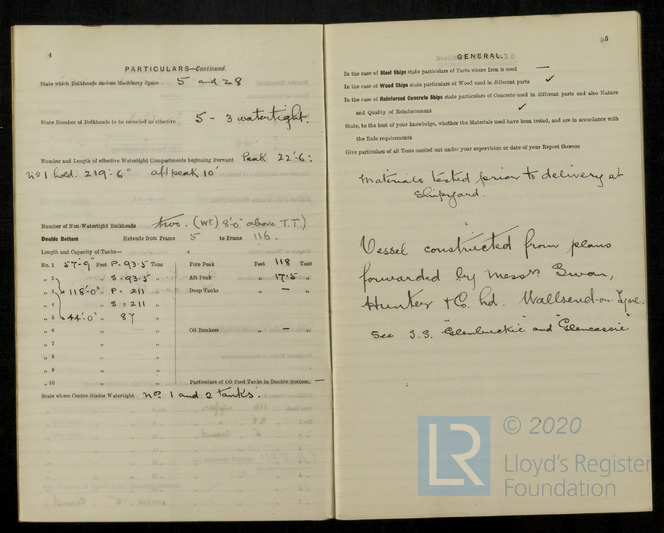 4
PARTICULARS—Continued.
State which Bulkheads enclose Machinery Space 5 and 28
State Number of Bulkheads to be recorded as effective 5 - 3 watertight.
Number and Length of effective Watertight Compartments beginning Forward Peak 22'-6":
No 1 hold. 219'-6" aft peak 10'
Number of Non-Watertight Bulkheads two. (WT) 8'-0" above T.T.)
Double Bottom Extends from Frame 5 to Frame 116.
Length and Capacity of Tanks—
No. 1 57'-9" Feet P. 93.5 Tons Fore Peak Feet 118 Tons
„ 2 „ S. 93.5 „ Aft Peak „ 17.5 „
„ 3 118'-0" „ P = 211 „ Deep Tanks „ — „
„ 4 „ S = 211 „
„ 5 44'-0" „ 87 „
„ 6 „ „ Oil Bunkers „ — „
„ 7 „ „
„ 8 „ „
„ 9 „ „
„ 10 „ „ Particulars of Oil Fuel Tanks in Double bottom. —
State where Centre Girder Watertight No. 1 and 2 tanks.
5
GENERAL.
In the case of Steel Ships state particulars of Parts where Iron is used —
In the case of Wood Ships state particulars of Wood used in different parts ✓
In the case of Reinforced Concrete Ships state particulars of Concrete used in different parts and also Nature
and Quality of Reinforcement ✓
State, to the best of your knowledge, whether the Materials used have been tested, and are in accordance with
the Rule requirements
Give particulars of all Tests carried out under your supervision to date of your Report thereon
Materials tested prior to delivery at
Shipyard.
Vessel constructed from plans
forwarded by Messrs Swan,
Hunter & Co. Ld. Wallsend-on-Tyne.
See S.S. "Glenluckie" and "Glencassie"
LR
© 2020
Lloyd's Register
Foundation